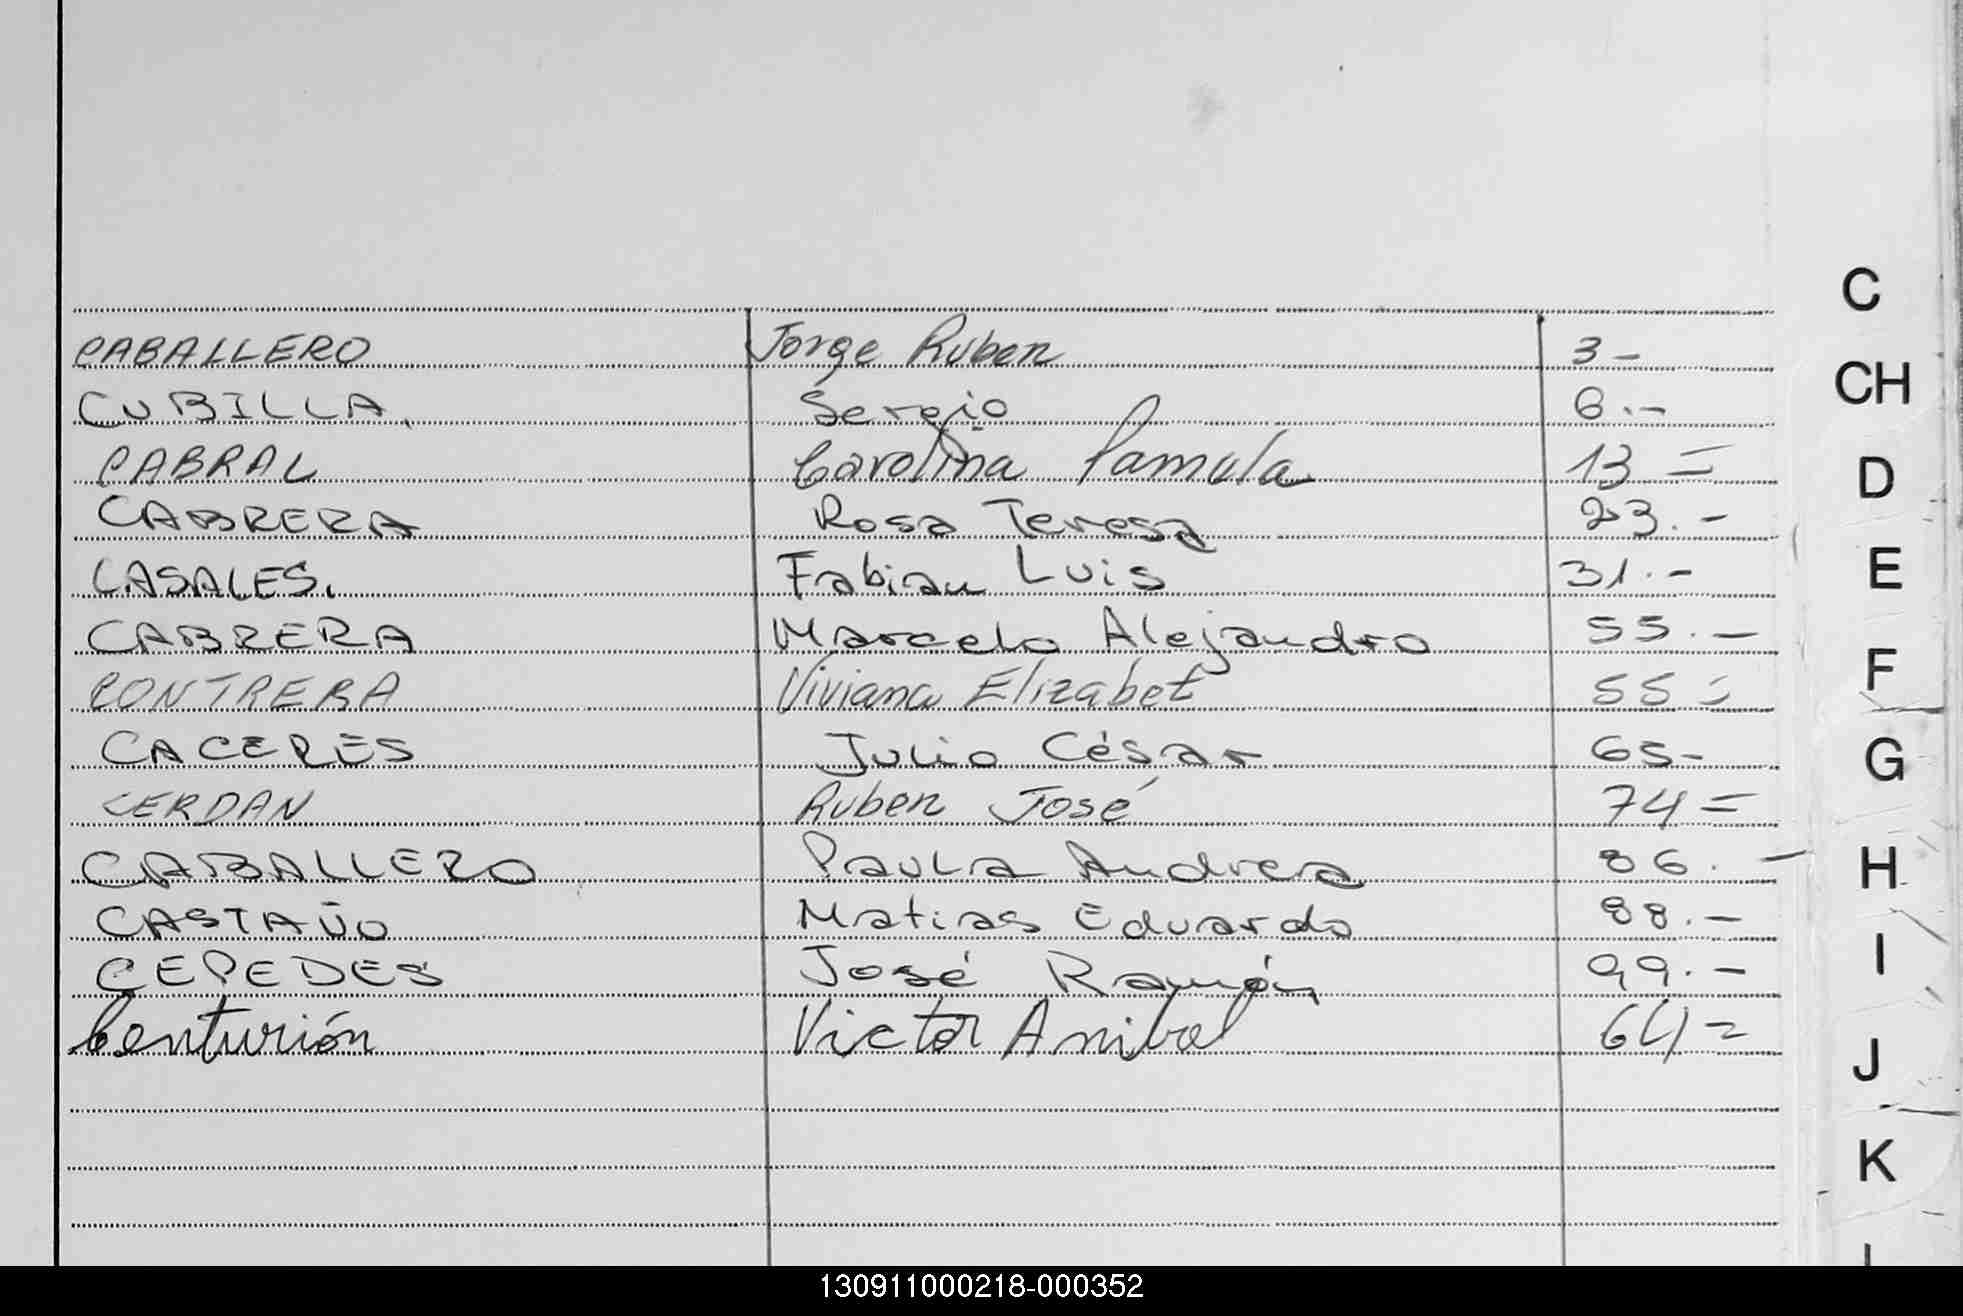 CABALLERO Jorge Ruben 3-
CUBILLA. Sergio 6.-
CABRAL Carolina Pamula 13=
CABRERA Rosa Teresa 23.-
CASALES. Fabian Luis 31.-
CABRERA Marcelo Alejandro 55.-
CONTRERA Viviana Elizabet 55=
CACERES Julio César 65-
CERDAN Ruben José 74=
CABALLERO Paula Andrea 86.-
CASTAÑO Matias Eduardo 88.-
CEPEDES José Ramón 99.-
Centurión Victor Anibal 64=
C
CH
D
E
F
G
H
I
J
K
130911000218-000352